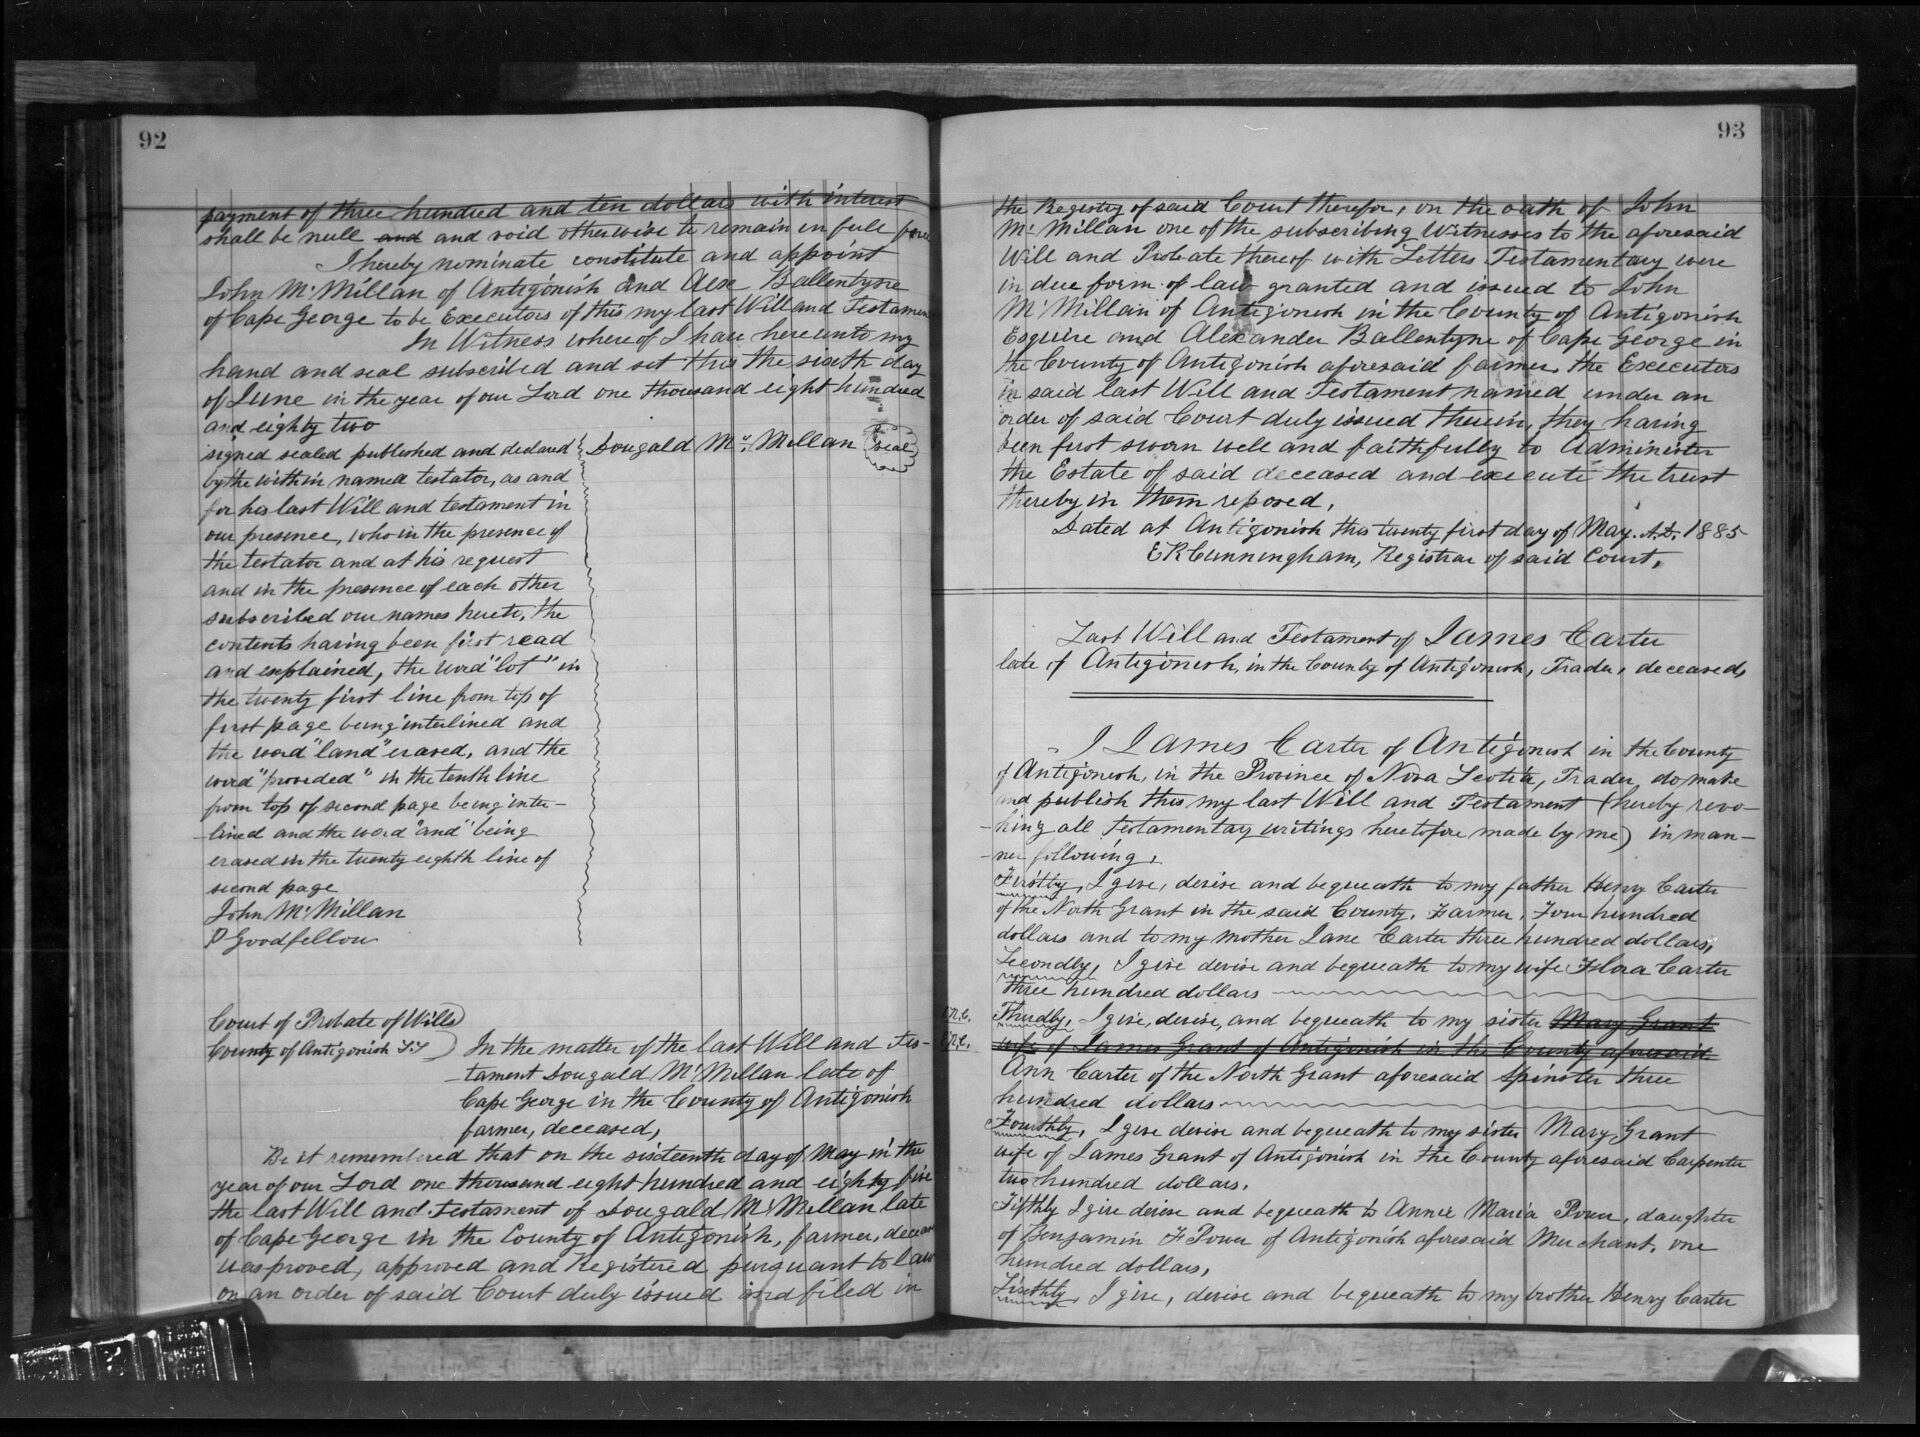 92
payment of three hundred and ten dollars with interest
shall be null and and void otherwise to remain in full force
I hereby nominate constitute and appoint
John McMillan of Antigonish and Alex Ballentyne
of Cape George to be Executors of this my last Will and Testamen
In Witness where of I have here unto my
hand and seal subscribed and set this the sixth day
of June in the year of our Lord one thousand eight hundred
and eighty two
signed sealed published and declared Dougald McMillan seal
by the within named testator, as and
for his last Will and testament in
our presence, who in the presence of
the testator and at his request
and in the presence of each other
subscribed our names hereto, the
contents having been first read
and explained, the word "lot" in
the twenty first line from top of
first page being interlined and
the word "land" erased, and the
word "provided" in the tenth line
from top of second page being inter-
-lined and the word "and" being
erased in the twenty eighth line of
second page
John McMillan
P Goodfellow
Court of Probate of Wills
County of Antigonish S.S In the matter of the last Will and Tes-
-tament Dougald McMillan late of
Cape George in the County of Antigonish
farmer, deceased,
Be it remembered that on the sixteenth day of May in the
year of our Lord one thousand eight hundred and eighty five
the last Will and Testament of Dougald McMillan late
of Cape George in the County of Antigonish, farmer, deceas
was proved, approved and Registered pursuant to law
on an order of said Court duly issued and filed in
93
the Registry of said Court therefor, on the oath of John
McMillan one of the subscribing Witnesses to the aforesaid
Will and Probate thereof with Letters Testamentary were
in due form of law granted and issued to John
McMillan of Antigonish in the County of Antigonish
Esquire and Alexander Ballentyne of Cape George in
the County of Antigonish aforesaid farmer, the Executors
in said last Will and Testament named under an
order of said Court duly issued therein, they having
been first sworn well and faithfully to Administer
the Estate of said deceased and execute the trust
thereby in them reposed.
Dated at Antigonish this twenty first day of May. A.D. 1885
E R Cunningham, Registrar of said Court.
Last Will and Testament of James Carter
late of Antigonish, in the County of Antigonish, Trader, deceased,
I James Carter of Antigonish in the County
of Antigonish, in the Province of Nova Scotia, Trader, do make
and publish this my last Will and Testament (hereby revo-
-king all Testamentary writings heretofore made by me) in man-
-ner following,
Firstly, I give, devise and bequeath to my father Henry Carter
of the North Grant in the said County, Farmer, Four hundred
dollars and to my mother Jane Carter three hundred dollars,
Secondly, I give devise and bequeath to my wife Flora Carter
three hundred dollars
Thirdly, I give, devise, and bequeath to my sister Mary Grant
wife of James Grant of Antigonish in the County aforesaid
Ann Carter of the North Grant aforesaid Spinster three
hundred dollars
Fourthly, I give devise and bequeath to my sister Mary Grant
wife of James Grant of Antigonish in the County aforesaid Carpenter
two hundred dollars.
Fifthly I give devise and bequeath to Annie Maria Power, daughter
of Benjamin F Power of Antigonish aforesaid Merchant, one
hundred dollars,
Sixthly, I give, devise and bequeath to my brother Henry Carter